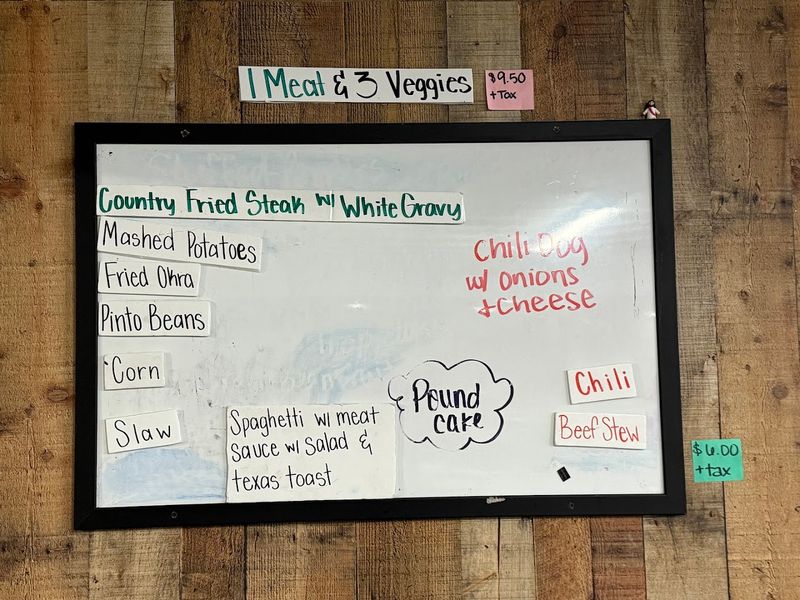 1 Meat & 3 Veggies
$9.50
+Tax
Country Fried Steak w/ White Gravy
Mashed Potatoes
Fried Okra
Pinto Beans
Corn
Slaw
Spaghetti w/ meat
sauce w/ salad &
texas toast
Pound
cake
Chili Dog
w/ onions
+cheese
Chili
Beef Stew
$6.00
+tax